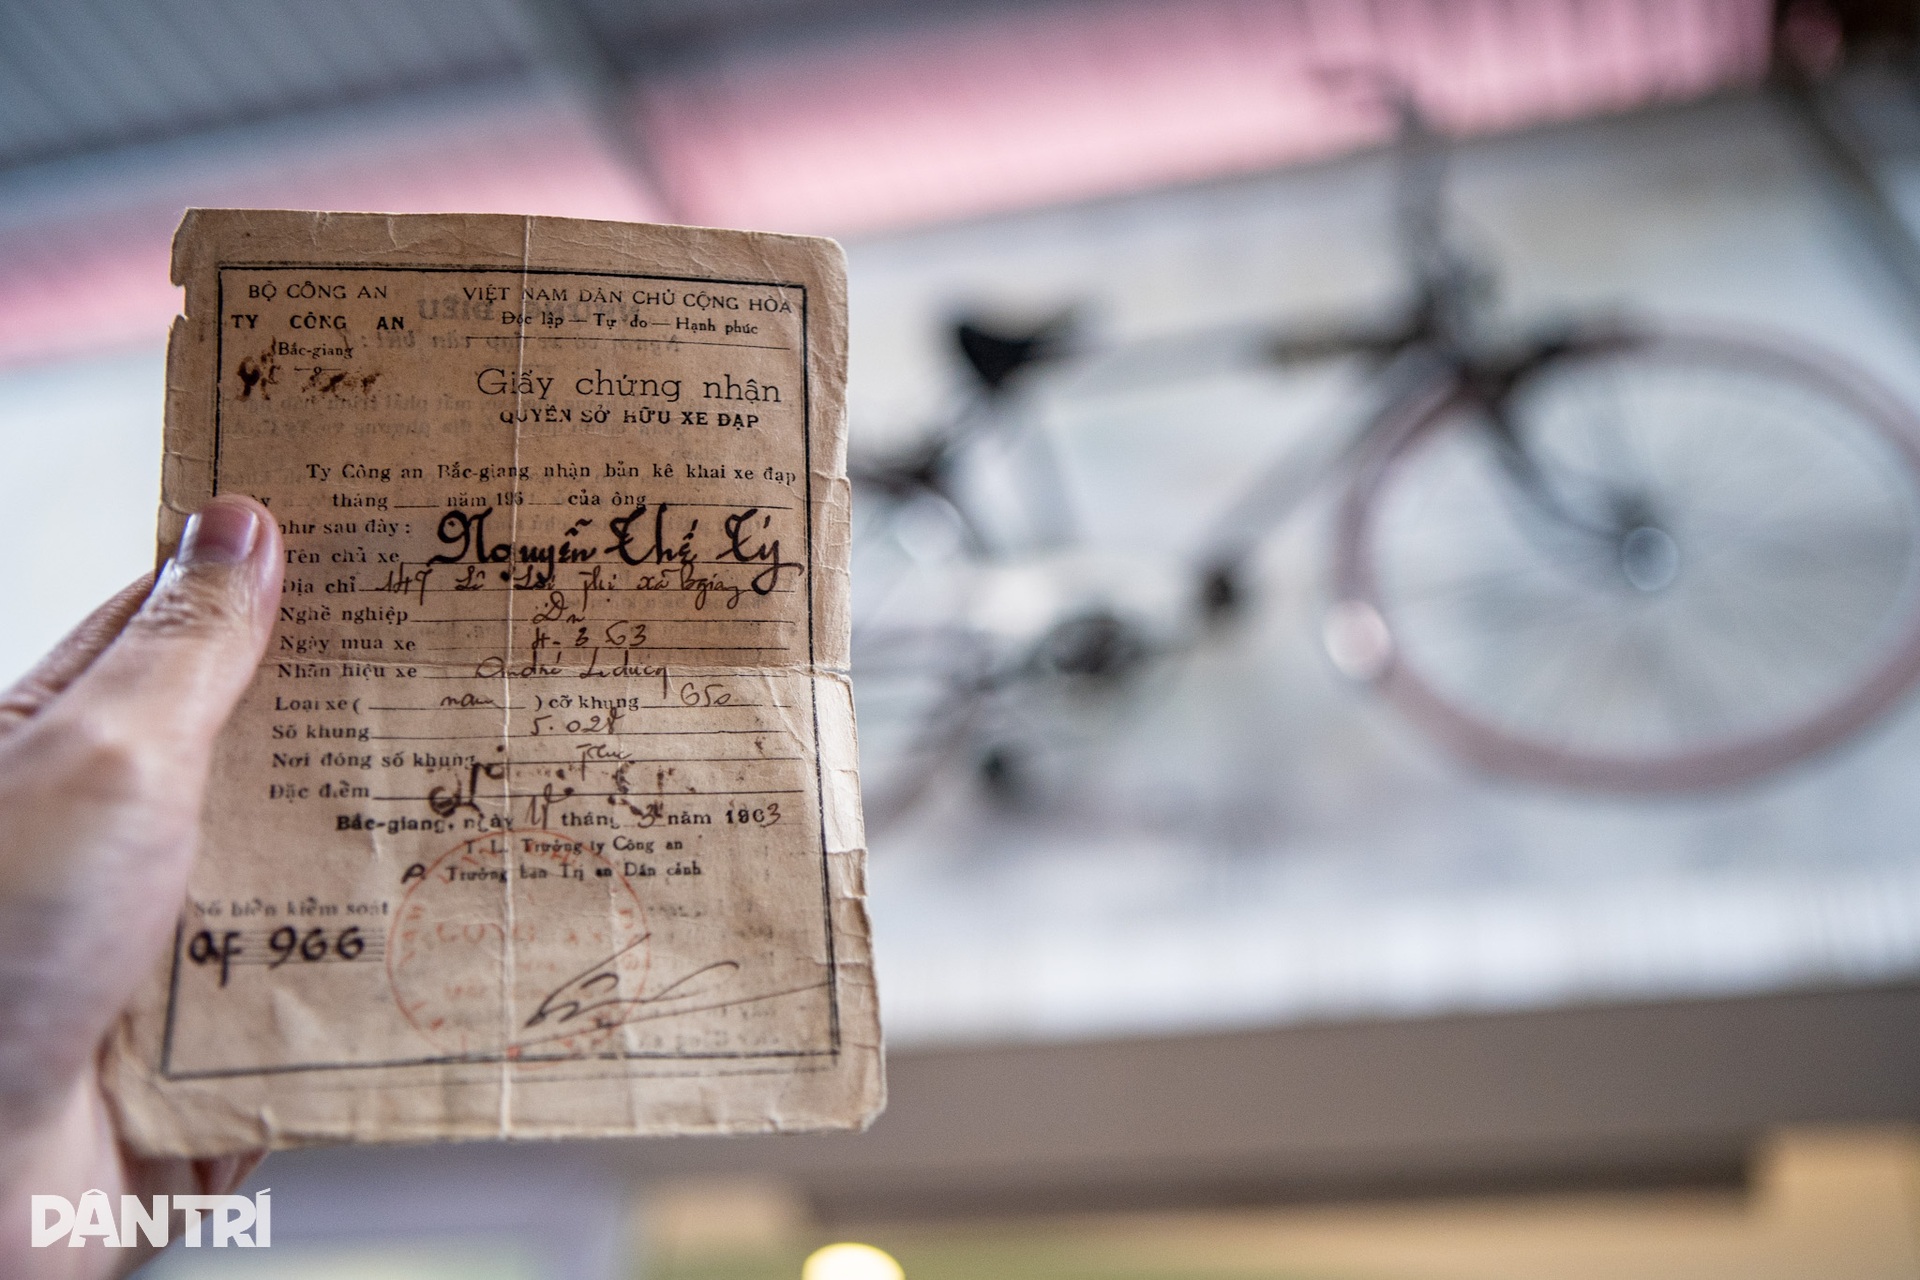 BỘ CÔNG AN
TY CÔNG AN
Bắc-giang
VIỆT NAM DÂN CHỦ CỘNG HÒA
Độc lập — Tự do — Hạnh phúc
Giấy chứng nhận
QUYỀN SỞ HỮU XE ĐẠP
Ty Công an Bắc-giang nhận bản kê khai xe đạp
tháng năm 196 của ông
như sau đây :
Tên chủ xe Nguyễn Thế Tý
Địa chỉ 147 Lê Lợi thị xã
Nghề nghiệp
Ngày mua xe 3 63
Nhãn hiệu xe André Leducq
Loại xe ( nam ) cỡ khung 650
Số khung 5.028
Nơi đóng số khung
Đặc điểm
Bắc-giang, ngày tháng 3 năm 1963
T.L. Trưởng ty Công an
Trưởng ban Trị an Dân cảnh
Số biển kiểm soát
af 966
DÂN TRÍ